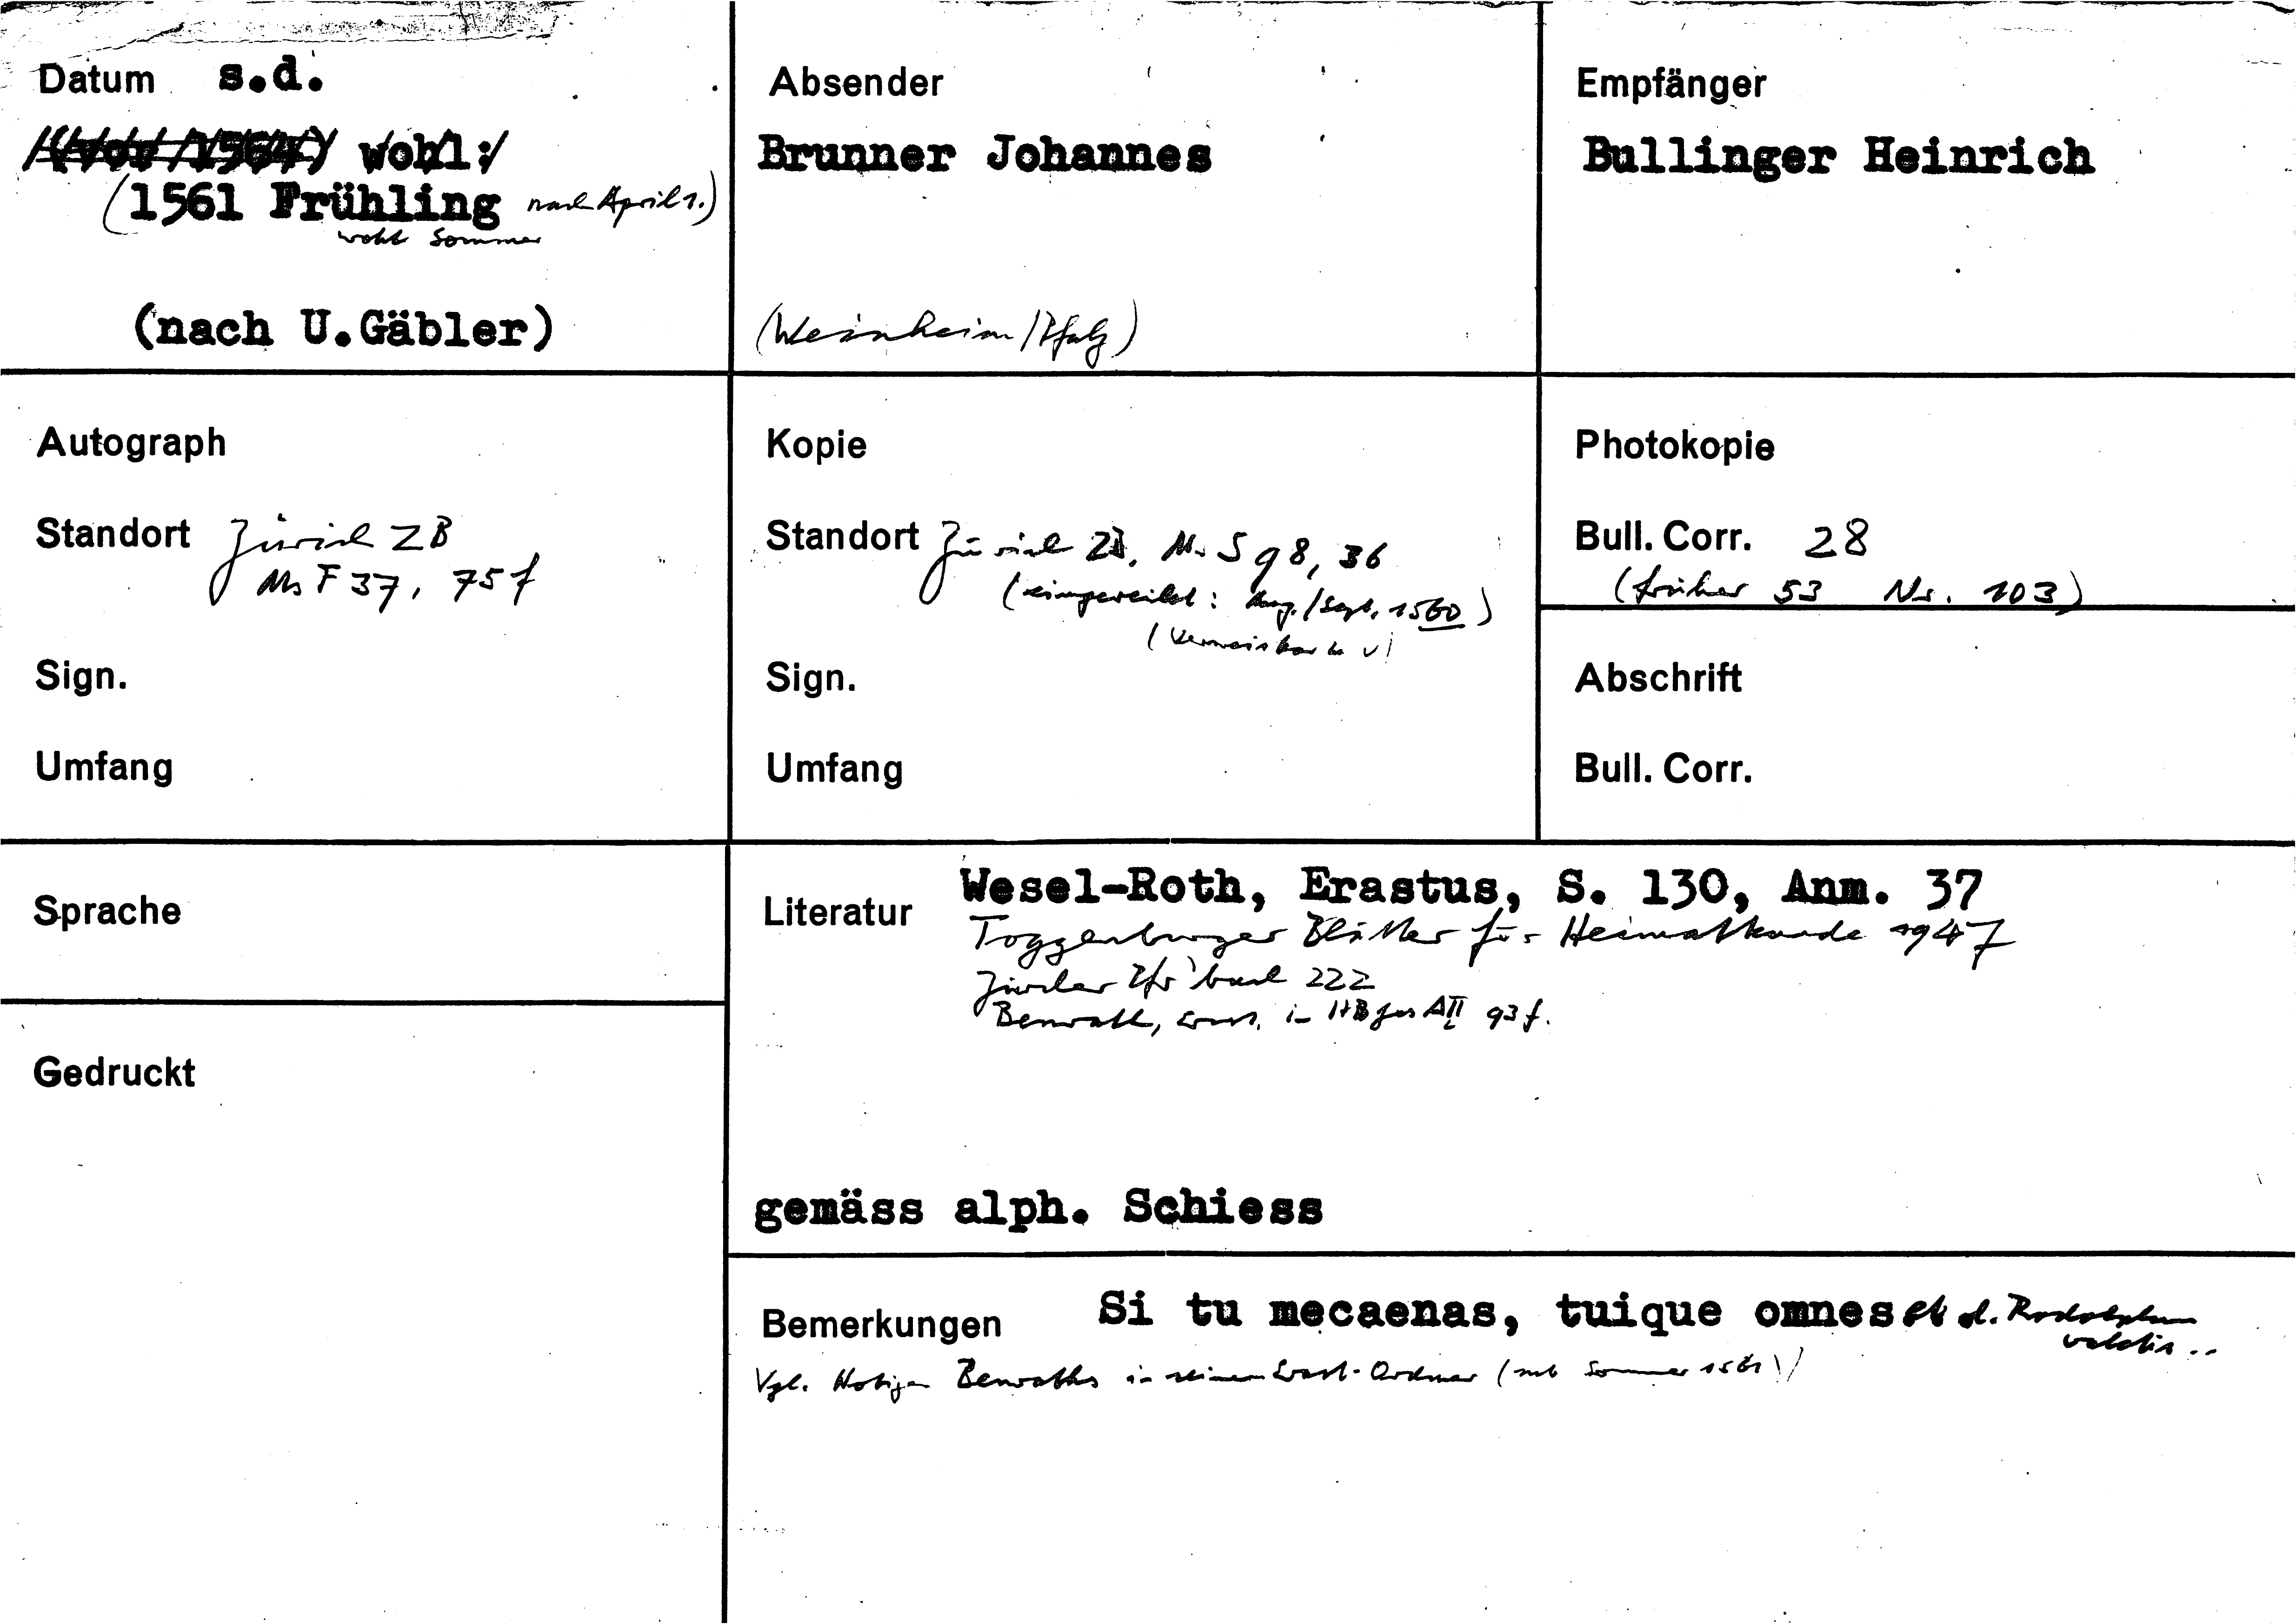 Datum s.d.
(vor 1564) wohl:
(1561 Frühling nach April 1.)
wohl Sommer
(nach U.Gäbler)
Absender
Brunner Johannes
(Weinheim/Pfalz)
Empfänger
Bullinger Heinrich
Autograph
Standort Zürich ZB
Ms F 37, 75 f
Sign.
Umfang
Kopie
Standort Zürich ZB, Ms S 98, 36
(eingereiht: Aug./Sept. 1560)
Sign.
Umfang
Photokopie
Bull. Corr. 28
(früher 53 Nr. 103)
Abschrift
Bull. Corr.
Sprache
Gedruckt
Literatur Wesel-Roth, Erastus, S. 130, Anm. 37
Toggenburger Blätter für Heimatkunde 1947
Zürcher Pfr'buch 222
Benrath, in HB Ges A II 93 f.
gemäss alph. Schiess
Bemerkungen Si tu mecaenas, tuique omnes et d. Rodolphum
valetis ..
Vgl. Notizen Benraths in seinem Erast-Ordner (mit Sommer 1561)